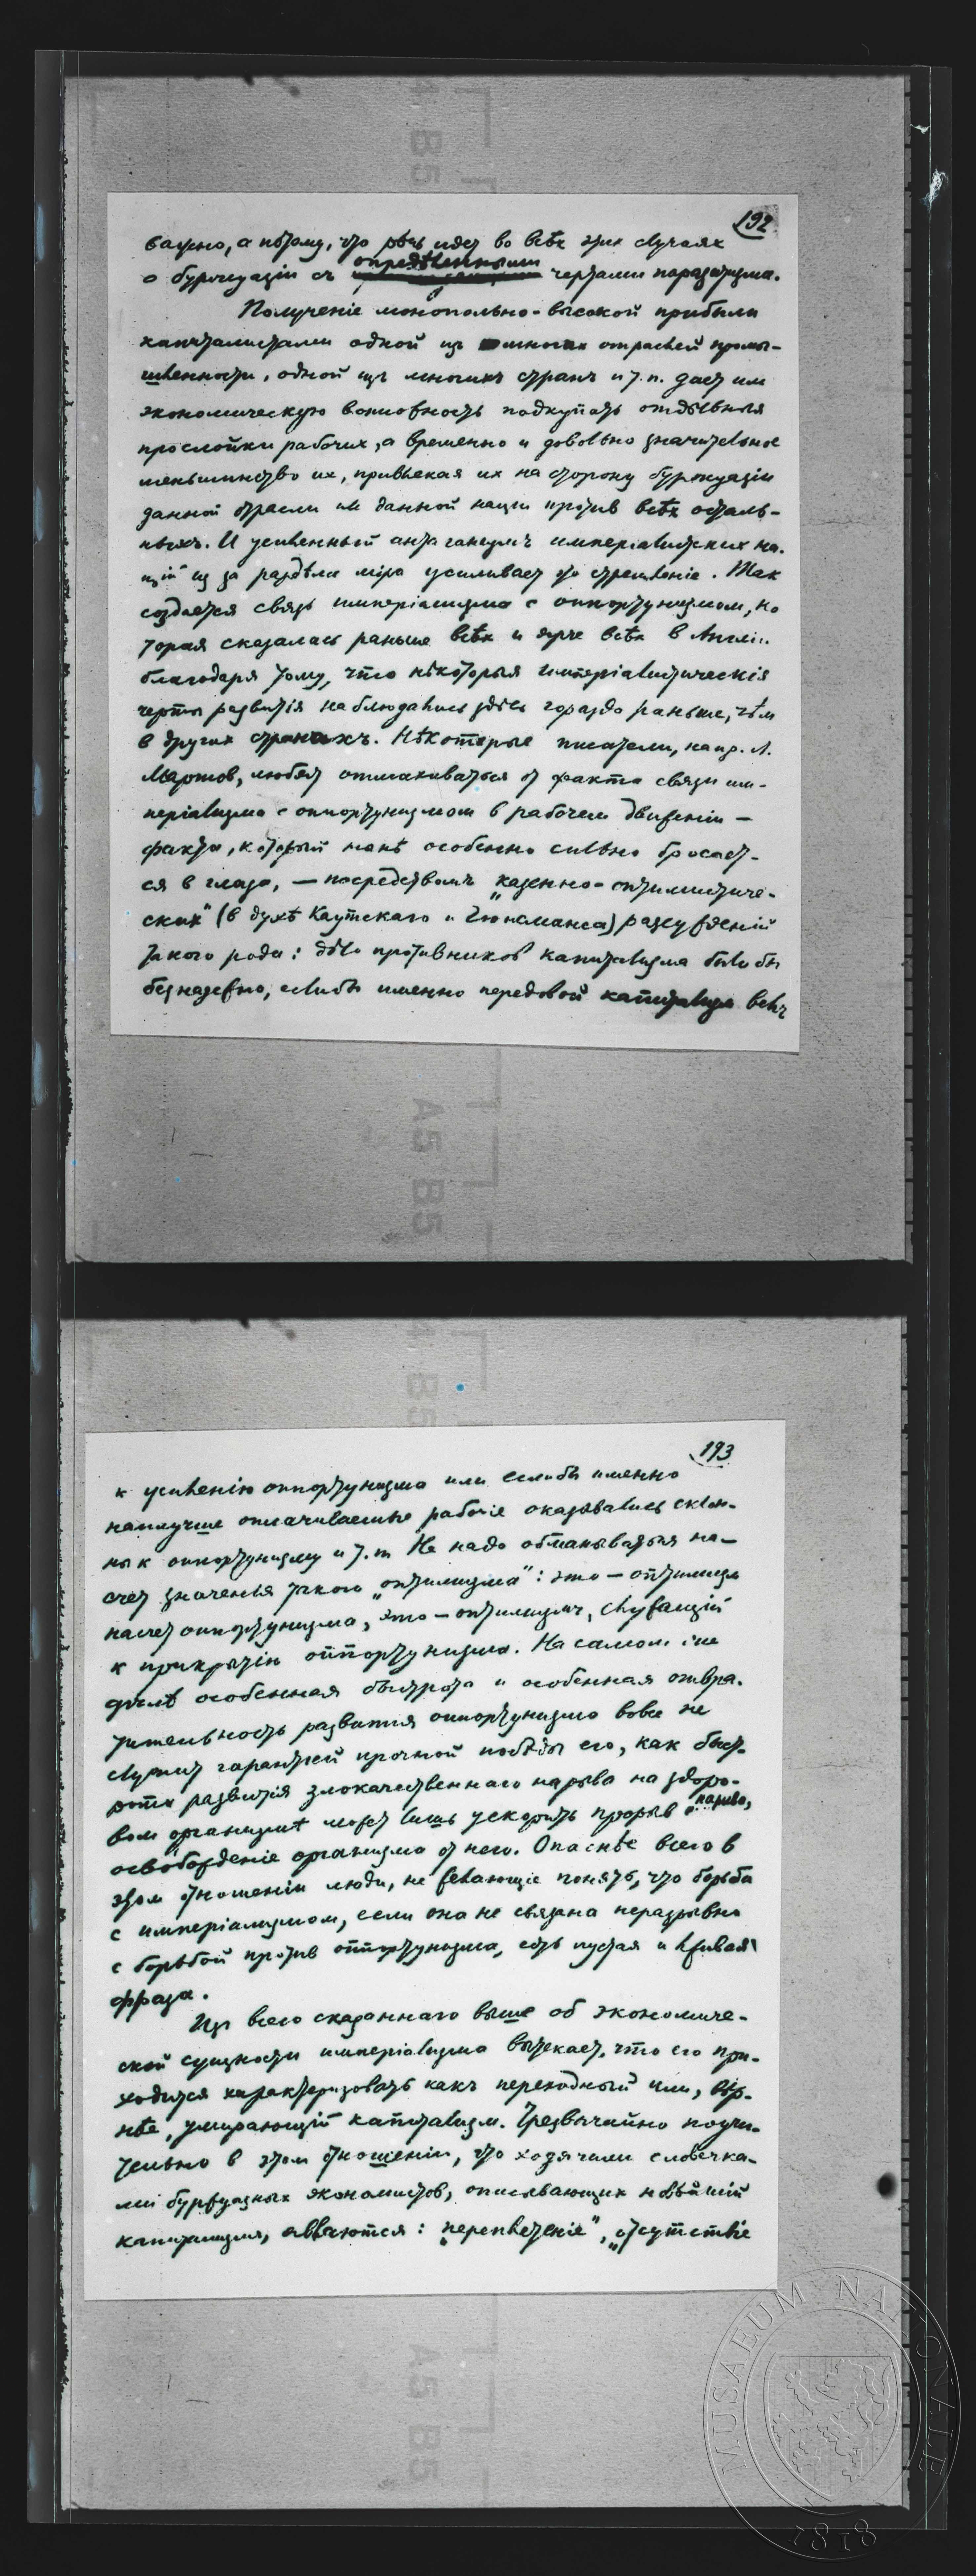 192
важно, а потому, что рѣчь идет во всѣх этих случаях
о буржуазіи съ опредѣленными чертами паразитизма.
Полученіе монопольно-высокой прибыли
капиталистами одной из многих отраслей промы-
шленности, одной изъ многихъ странъ и т.п. дает им
экономическую возможность подкупать отдѣльныя
прослойки рабочих, а временно и довольно значительное
меньшинство их, привлекая их на сторону буржуазіи
данной отрасли или данной націи против всѣх осталь-
ныхъ. И усиленный антагонизмъ имперіалистских на-
цій из за раздѣла міра усиливает это стремленіе. Так
создается связь имперіализма с оппортунизмом, ко
торая сказалась раньше всѣх и ярче всѣх в Англіи
благодаря тому, что нѣкоторыя имперіалистическія
черты развитія наблюдались здѣсь гораздо раньше, чѣм
в других странахъ. Нѣкоторые писатели, напр. Л.
Мартов, любят отмахиваться от факта связи им-
періализма с оппортунизмом в рабочем движеніи —
факта, который нынѣ особенно сильно бросает-
ся в глаза, — посредствомъ „казенно-оптимистиче-
ских“ (в духѣ Каутскаго и Гюисманса) разсужденій
такого рода: дѣло противников капитализма было бы
безнадежно, если бы именно передовой капитализм велъ
193
к усиленію оппортунизма или если бы именно
наилучше оплачиваемые рабочіе оказывались склон-
ны к оппортунизму и т.п. Не надо обманываться на-
счет значенья такого „оптимизма“: это — оптимизм
насчет оппортунизма, это — оптимизмъ, служащій
к прикрытію оппортунизма. На самом же
дѣлѣ особенная быстрота и особенная отвра-
тительность развития оппортунизма вовсе не
служит гарантіей прочной побѣды его, как быст-
рота развитія злокачественнаго нарыва на здоро-
вом организмѣ может лишь ускорить прорыв нарыва,
освобожденіе организма от него. Опаснѣе всего в
этом отношеніи люди, не желающіе понять, что борьба
с имперіализмом, если она не связана неразрывно
с борьбой против оппортунизма, есть пустая и лживая
фраза.
Из всего сказаннаго выше об экономиче-
ской сущности имперіализма вытекает, что его при-
ходится характеризовать какъ переходный или, вѣр-
нѣе, умирающій капитализм. Чрезвычайно поучи-
тельно в этом отношеніи, что ходячими словечка-
ми буржуазных экономистов, описывающих новѣйшій
капитализм, являются: „переплетеніе“, „отсутствіе
A5 B5
A5 B5
MUSAEUM NATIONALE
1818